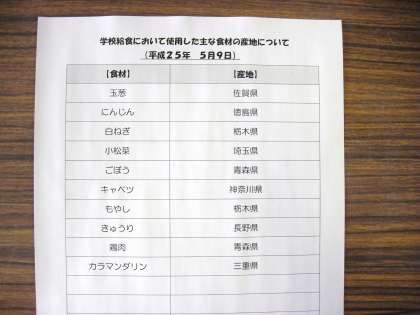 学校給食において使用した主な食材の産地について
（平成２５年　５月９日）
【食材】　【産地】
玉葱　佐賀県
にんじん　徳島県
白ねぎ　栃木県
小松菜　埼玉県
ごぼう　青森県
キャベツ　神奈川県
もやし　栃木県
きゅうり　長野県
鶏肉　青森県
カラマンダリン　三重県